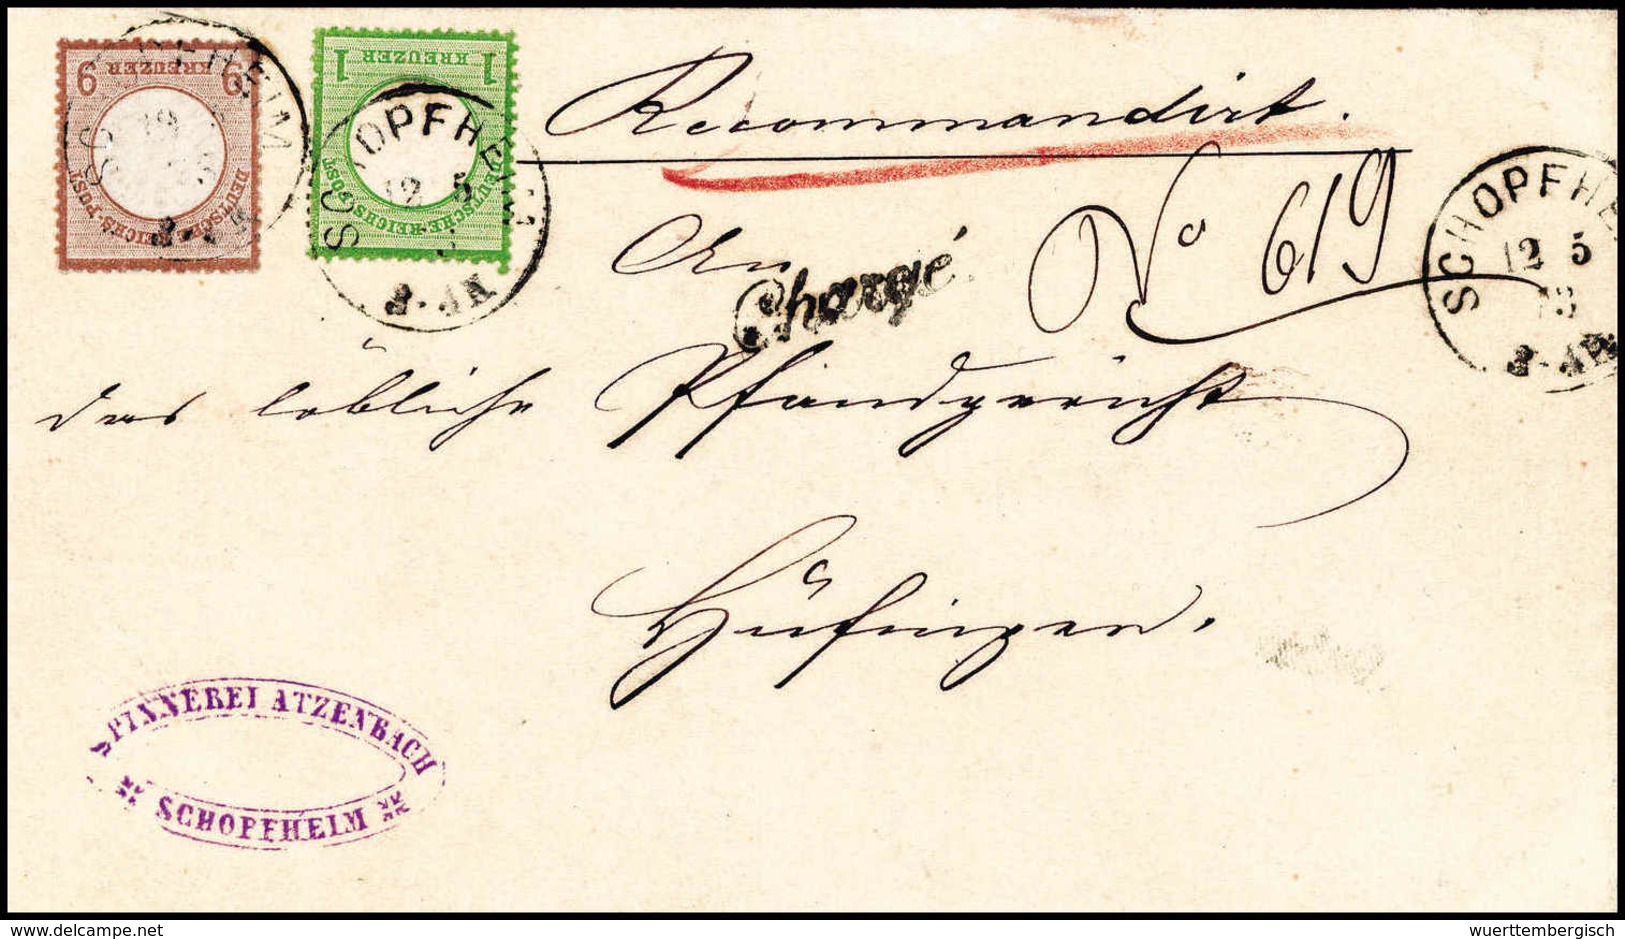 9 KREUZER 9
DEUTSCHE-REICHS-POST
1 KREUZER 1
DEUTSCHE-REICHS-POST
SCHOPFHEIM
12 5
2-4N.
Recommandirt.
No 619
SCHOPFHEI
12 5
73
2-4N.
An
Chargé.
das löbliche Pfandgericht
Hüfingen.
SPINNEREI ATZENBACH
SCHOPFHEIM
www.delcampe.net
wuerttembergisch